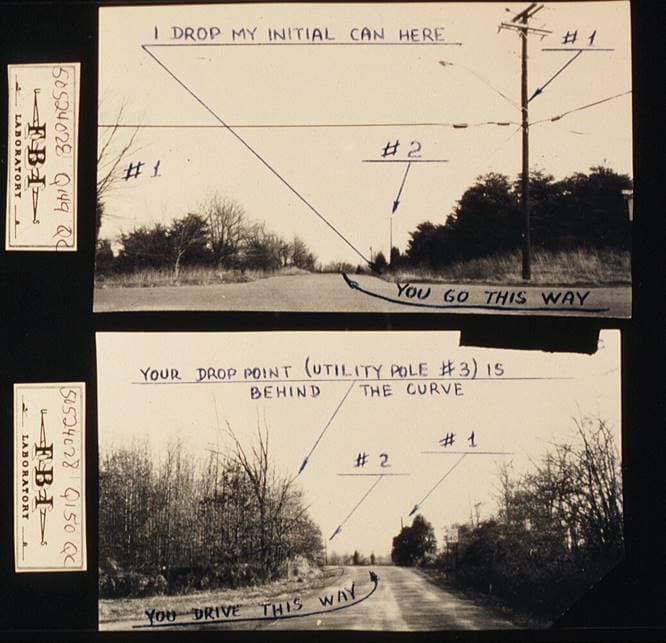 I DROP MY INITIAL CAN HERE
#1
#2
#1
YOU GO THIS WAY
50524028 Q149 QC
FBI
LABORATORY
YOUR DROP POINT (UTILITY POLE #3) IS
BEHIND THE CURVE
#1
#2
YOU DRIVE THIS WAY
50524028 Q150 QC
FBI
LABORATORY